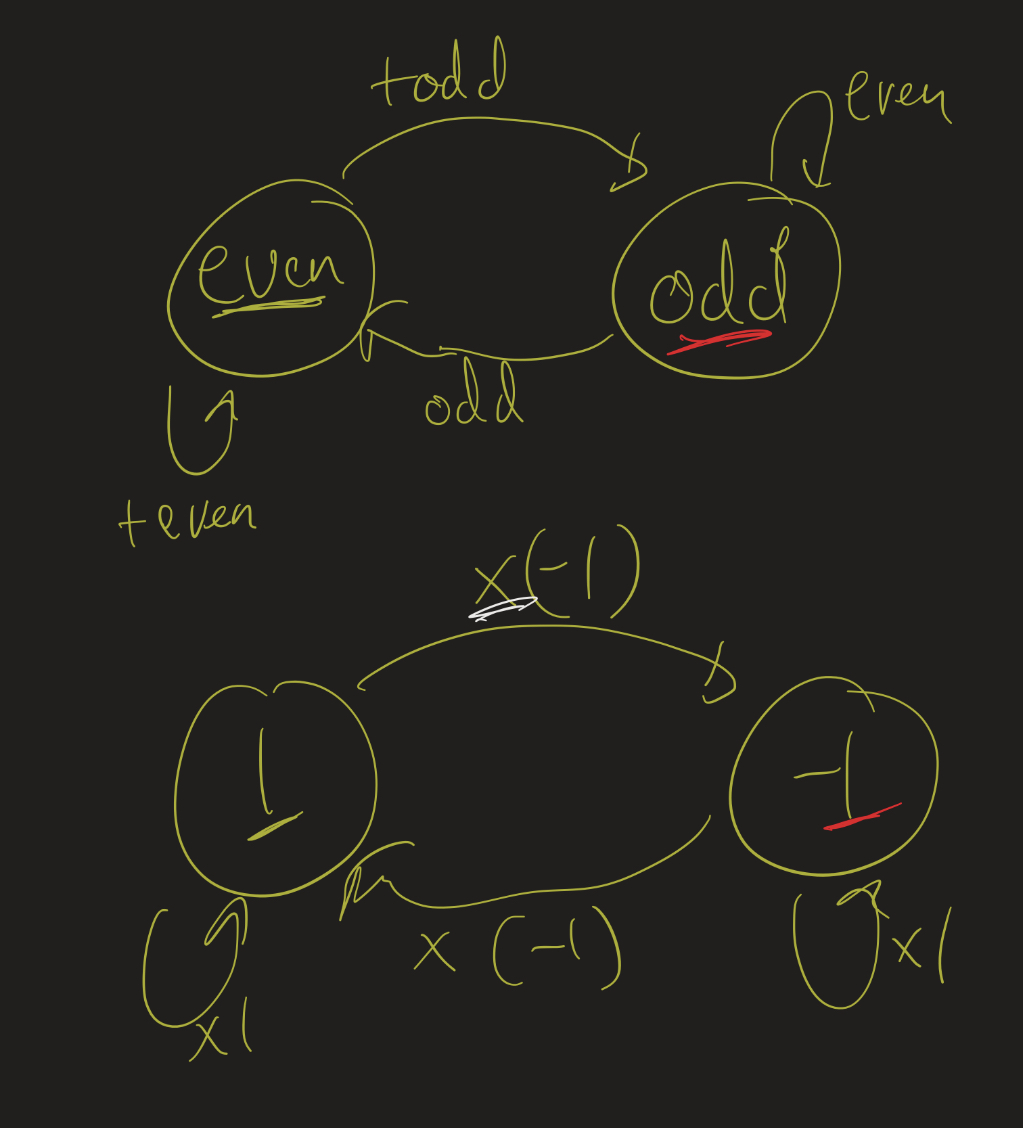 +odd
even
even
odd
odd
+even
x(-1)
1
-1
x(-1)
x1
x1